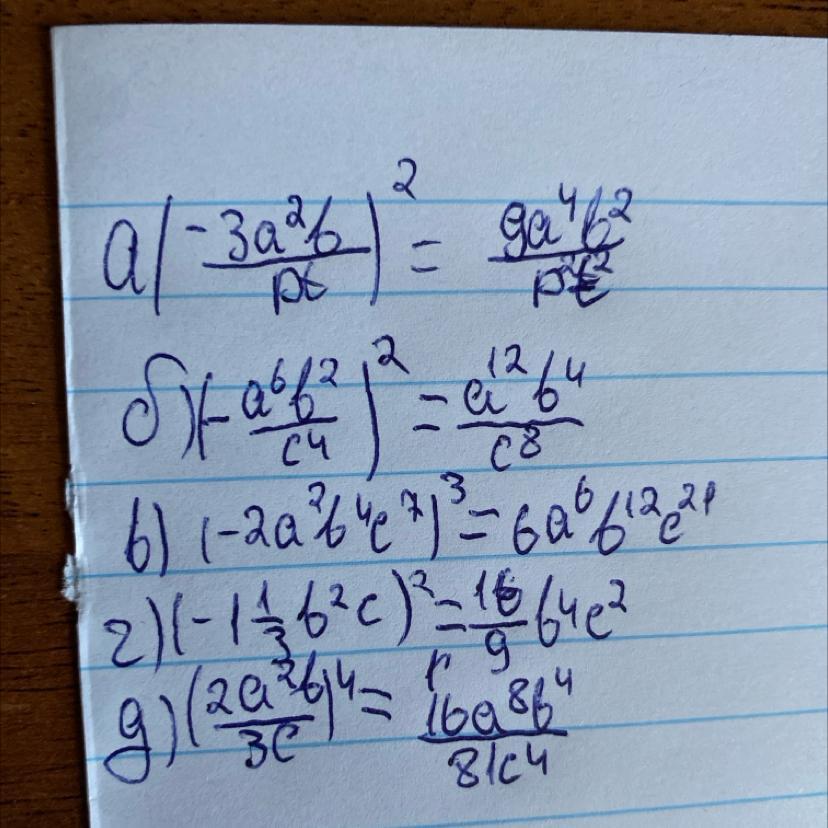 а(-3a²b/pt)² = 9a⁴b²/p²t²
б)(-a⁶b²/c⁴)² = a¹²b⁴/c⁸
в) (-2a²b⁴c⁷)³ = 6a⁶b¹²c²¹
г)(-1 1/3 b²c)² = 16/9 b⁴c²
д)(2a²b/3c)⁴ = 16a⁸b⁴/81c⁴